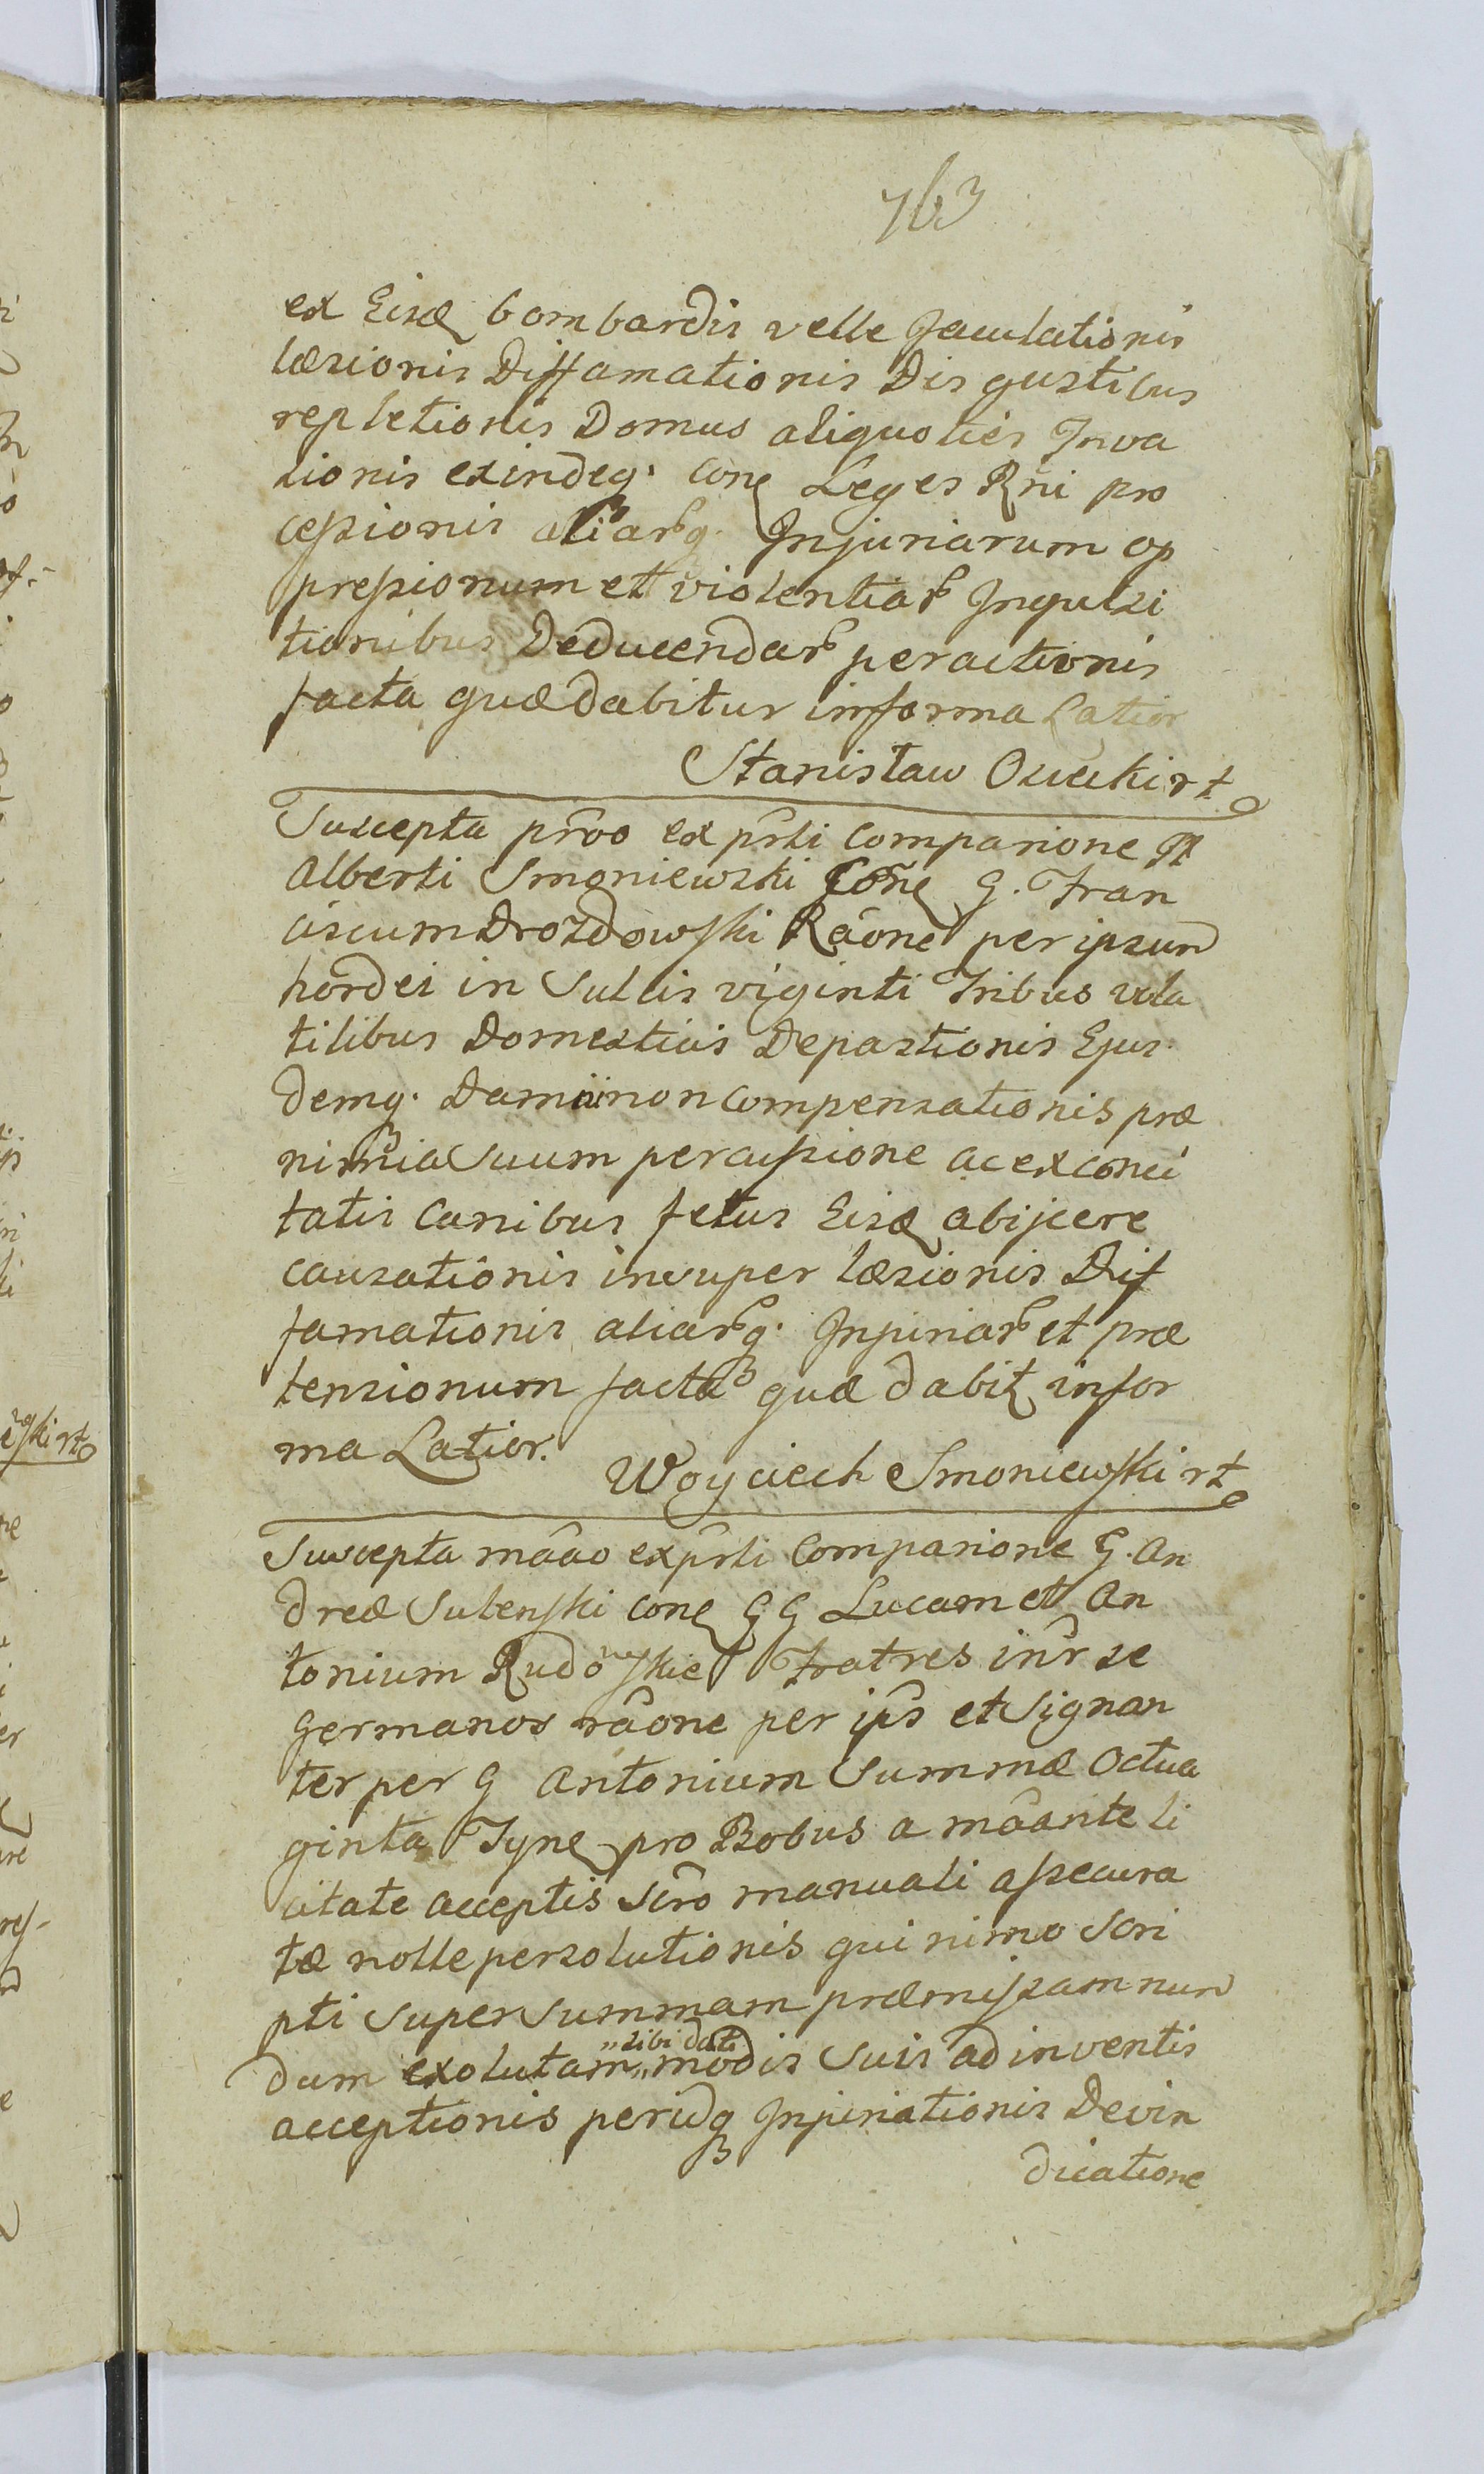 763
ex Eisd bombardis velle Jaculationis
læsionis Diffamationis Disgustibus
repletionis Domus aliquoties Inva
sionis exindeq. cone Leges Rni pro
cessionis aliarq. Injuriarum op
pressionum et violentiar Inquisi
tionibus Deducendar peractionis
facta quæ dabitur in forma Latior
Stanisław Osieckirt
Suscepta prvo ex prsti Comparione
Alberti Smoniewski Cone G. Fran
ciscum Drozdowski Raone per ipsum
hordei in Sulcis viginti Tribus vola
tilibus Domesticis Depastionis Ejus
demq. Damni non compensationis præ
nimia Suum percussione ac ex conci
tatis Canibus fetus Eisd abijcere
causationis insuper læsionis Dif
famationis aliarq. Injuriar et præ
tensionum facta quæ dabit in for
ma Latior.
Woyciech Smoniewski rt
Suscepta mâao ex prsti Comparione G. An
dreæ Sulenski cone GG Lucam et An
tonium Rudowskie Fratres inr se
Germanos râone per ips et Signan
ter per G Antonium Summæ Octua
ginta Tyne pro Bobus a mâante li
citate acceptis Scro manuali assecura
tæ nolle persolutionis qui nimo Scri
pti Super Summam præmissam nun
dum exolutam „sibi dati„ modis Suis ad inventis
acceptionis peridq Injuriationis Devin
dicatione